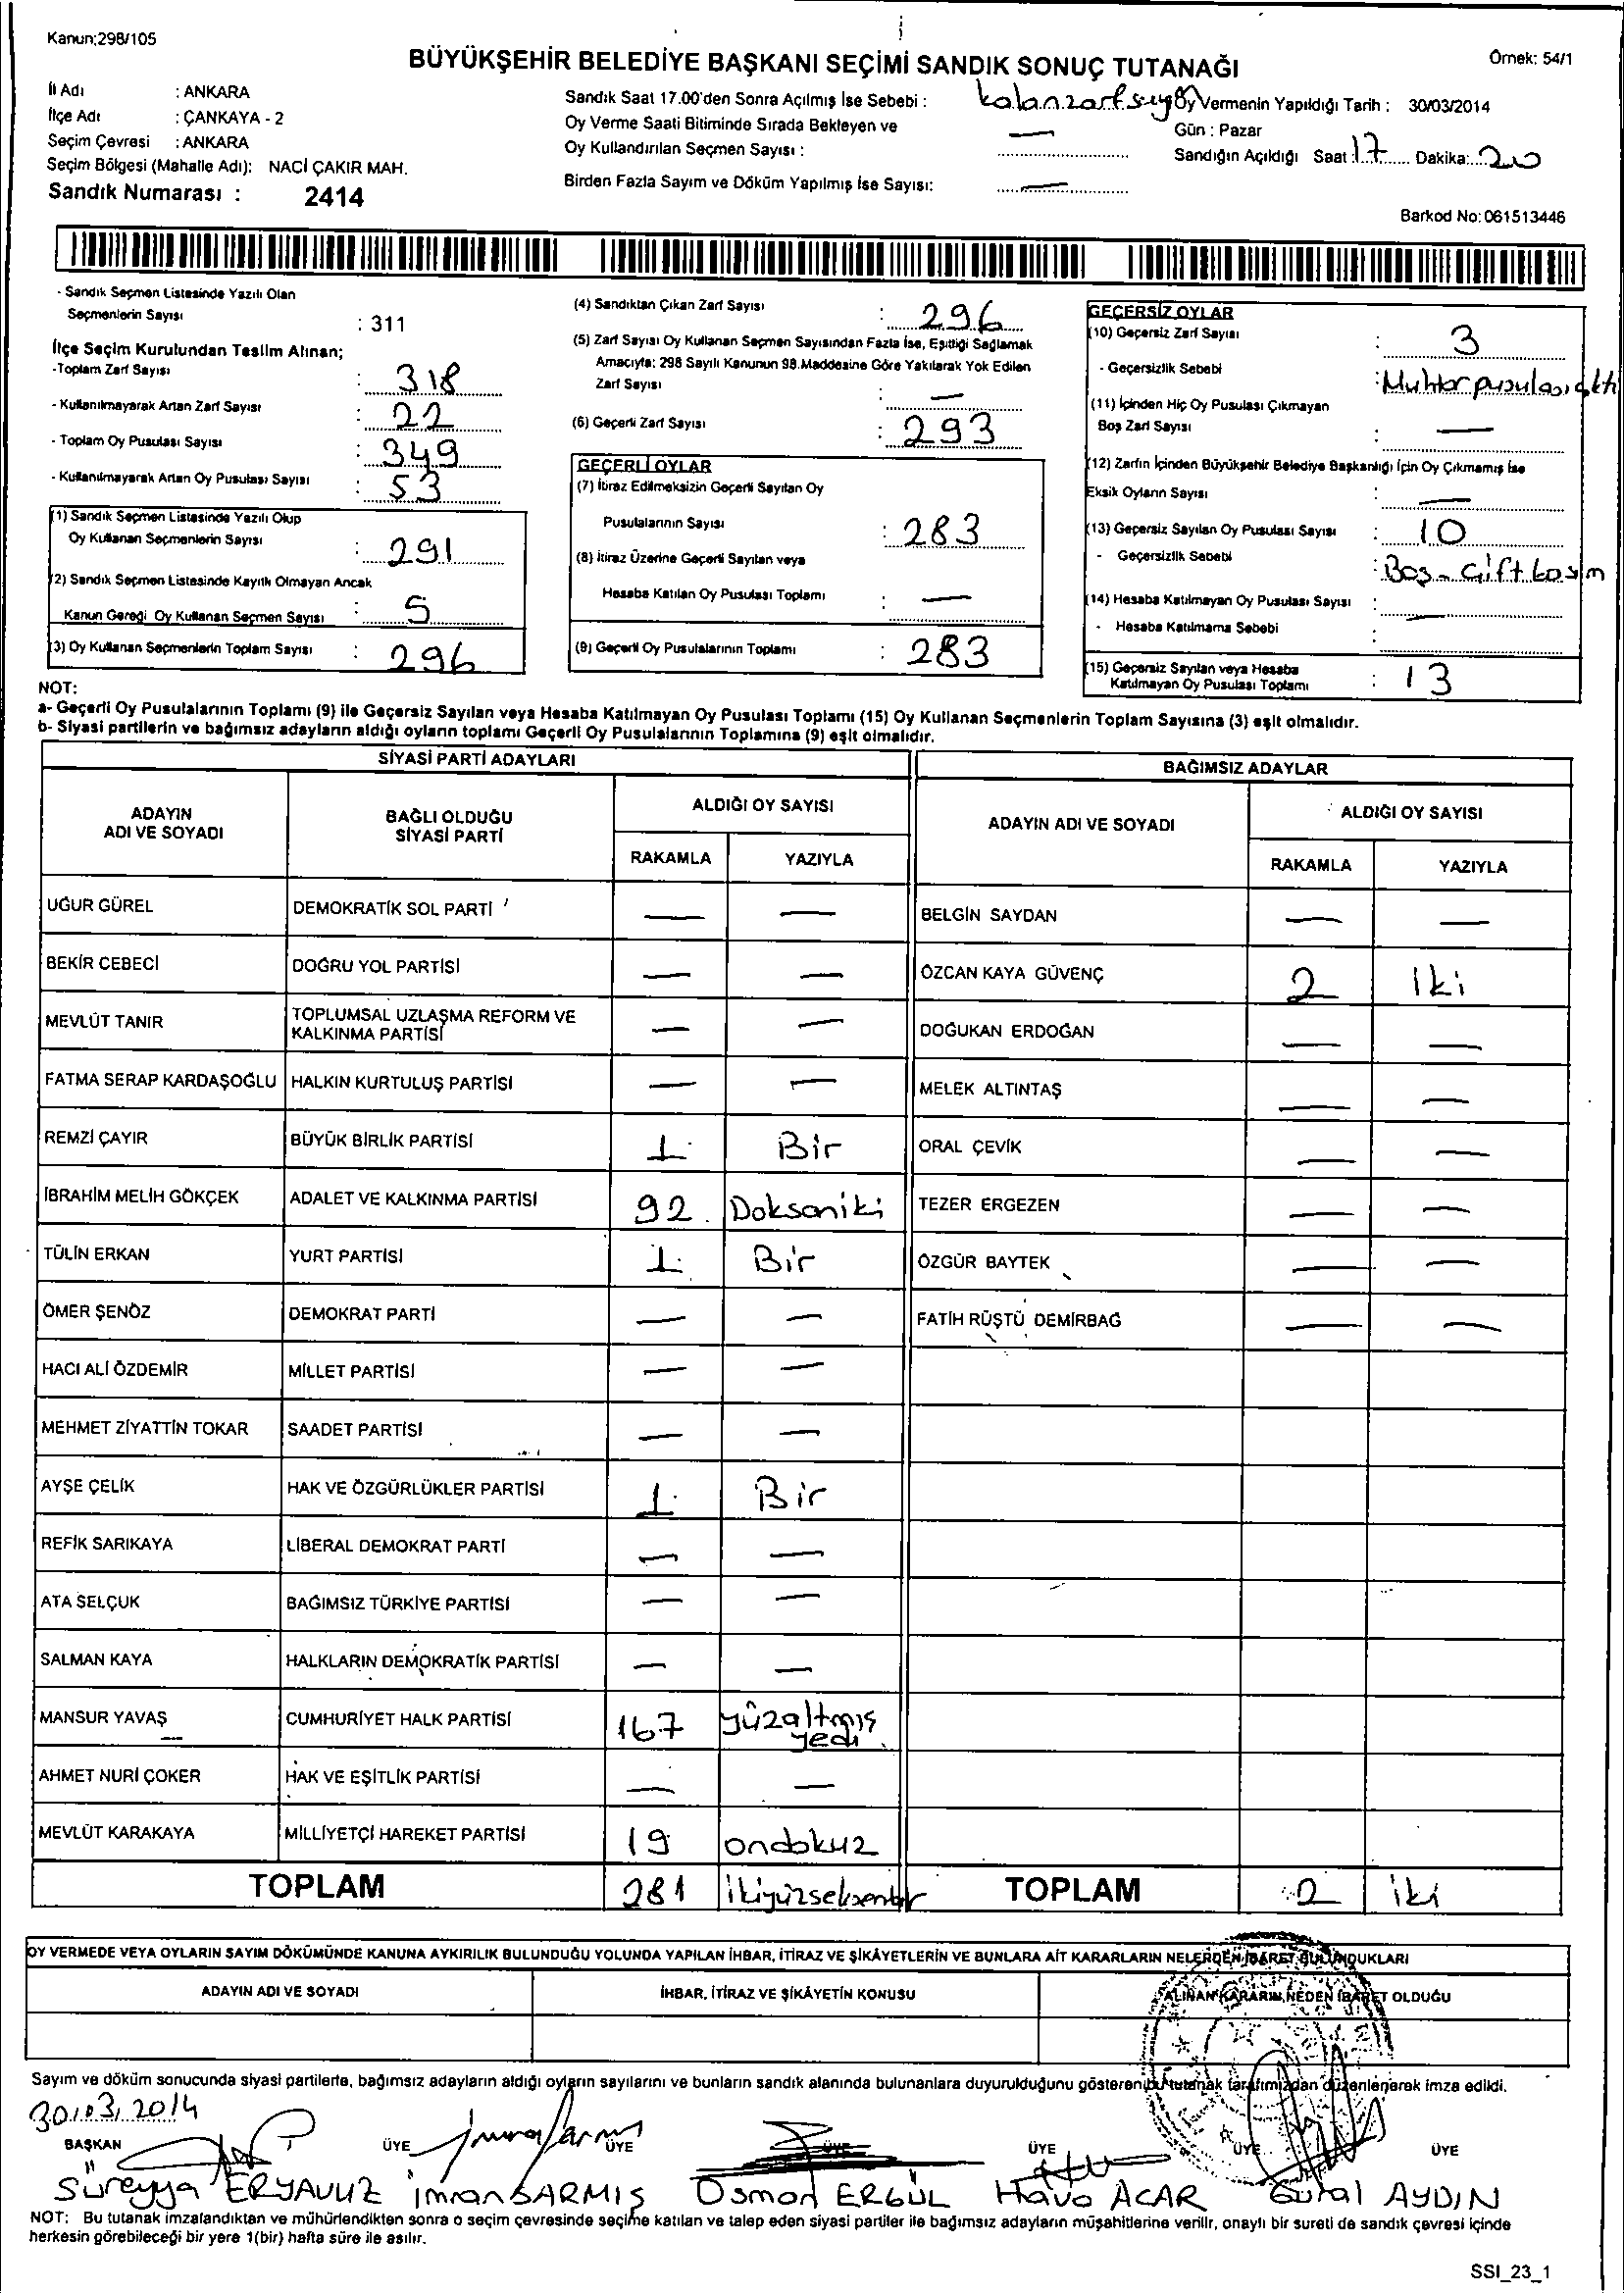 Kanun:298/105
BÜYÜKŞEHİR BELEDİYE BAŞKANI SEÇİMİ SANDIK SONUÇ TUTANAĞI
Örnek: 54/1
İl Adı : ANKARA
İlçe Adı : ÇANKAYA - 2
Seçim Çevresi : ANKARA
Seçim Bölgesi (Mahalle Adı): NACİ ÇAKIR MAH.
Sandık Numarası : 2414
Sandık Saat 17.00'den Sonra Açılmış İse Sebebi : kalan zarf
Oy Verme Saati Bitiminde Sırada Bekleyen ve
Oy Kullandırılan Seçmen Sayısı : —
Birden Fazla Sayım ve Döküm Yapılmış İse Sayısı: —
Oy Vermenin Yapıldığı Tarih : 30/03/2014
Gün : Pazar
Sandığın Açıldığı Saat : 17 Dakika: 20
Barkod No: 061513446
- Sandık Seçmen Listesinde Yazılı Olan
Seçmenlerin Sayısı : 311
İlçe Seçim Kurulundan Teslim Alınan;
-Toplam Zarf Sayısı : 318
- Kullanılmayarak Artan Zarf Sayısı : 22
- Toplam Oy Pusulası Sayısı : 349
- Kullanılmayarak Artan Oy Pusulası Sayısı : 53
(1) Sandık Seçmen Listesinde Yazılı Olup
Oy Kullanan Seçmenlerin Sayısı : 291
(2) Sandık Seçmen Listesinde Kayıtlı Olmayan Ancak
Kanun Gereği Oy Kullanan Seçmen Sayısı : 5
(3) Oy Kullanan Seçmenlerin Toplam Sayısı : 296
(4) Sandıktan Çıkan Zarf Sayısı : 296
(5) Zarf Sayısı Oy Kullanan Seçmen Sayısından Fazla İse, Eşitliği Sağlamak
Amacıyla: 298 Sayılı Kanunun 98.Maddesine Göre Yakılarak Yok Edilen
Zarf Sayısı : —
(6) Geçerli Zarf Sayısı : 293
GEÇERLİ OYLAR
(7) İtiraz Edilmeksizin Geçerli Sayılan Oy
Pusulalarının Sayısı : 283
(8) İtiraz Üzerine Geçerli Sayılan veya
Hesaba Katılan Oy Pusulası Toplamı : —
(9) Geçerli Oy Pusulalarının Toplamı : 283
GEÇERSİZ OYLAR
(10) Geçersiz Zarf Sayısı : 3
- Geçersizlik Sebebi : Muhtar pusulası çıktı
(11) İçinden Hiç Oy Pusulası Çıkmayan
Boş Zarf Sayısı : —
(12) Zarfın İçinden Büyükşehir Belediye Başkanlığı İçin Oy Çıkmamış İse
Eksik Oyların Sayısı : —
(13) Geçersiz Sayılan Oy Pusulası Sayısı : 10
- Geçersizlik Sebebi : Boş - Çift basım
(14) Hesaba Katılmayan Oy Pusulası Sayısı : —
- Hesaba Katılmama Sebebi :
(15) Geçersiz Sayılan veya Hesaba
Katılmayan Oy Pusulası Toplamı : 13
NOT:
a- Geçerli Oy Pusulalarının Toplamı (9) ile Geçersiz Sayılan veya Hesaba Katılmayan Oy Pusulası Toplamı (15) Oy Kullanan Seçmenlerin Toplam Sayısına (3) eşit olmalıdır.
b- Siyasi partilerin ve bağımsız adayların aldığı oyların toplamı Geçerli Oy Pusulalarının Toplamına (9) eşit olmalıdır.
SİYASİ PARTİ ADAYLARI
ADAYIN ADI VE SOYADI
BAĞLI OLDUĞU SİYASİ PARTİ
ALDIĞI OY SAYISI
RAKAMLA YAZIYLA
UĞUR GÜREL DEMOKRATİK SOL PARTİ — —
BEKİR CEBECİ DOĞRU YOL PARTİSİ — —
MEVLÜT TANIR TOPLUMSAL UZLAŞMA REFORM VE KALKINMA PARTİSİ — —
FATMA SERAP KARDAŞOĞLU HALKIN KURTULUŞ PARTİSİ — —
REMZİ ÇAYIR BÜYÜK BİRLİK PARTİSİ 1 Bir
İBRAHİM MELİH GÖKÇEK ADALET VE KALKINMA PARTİSİ 92 Doksaniki
TÜLİN ERKAN YURT PARTİSİ 1 Bir
ÖMER ŞENÖZ DEMOKRAT PARTİ — —
HACI ALİ ÖZDEMİR MİLLET PARTİSİ — —
MEHMET ZİYATTİN TOKAR SAADET PARTİSİ — —
AYŞE ÇELİK HAK VE ÖZGÜRLÜKLER PARTİSİ 1 Bir
REFİK SARIKAYA LİBERAL DEMOKRAT PARTİ — —
ATA SELÇUK BAĞIMSIZ TÜRKİYE PARTİSİ — —
SALMAN KAYA HALKLARIN DEMOKRATİK PARTİSİ — —
MANSUR YAVAŞ CUMHURİYET HALK PARTİSİ 167 yüzaltmış yedi
AHMET NURİ ÇOKER HAK VE EŞİTLİK PARTİSİ — —
MEVLÜT KARAKAYA MİLLİYETÇİ HAREKET PARTİSİ 19 ondokuz
TOPLAM 281 ikiyüzseksenbir
BAĞIMSIZ ADAYLAR
ADAYIN ADI VE SOYADI
ALDIĞI OY SAYISI
RAKAMLA YAZIYLA
BELGİN SAYDAN — —
ÖZCAN KAYA GÜVENÇ 2 Iki
DOĞUKAN ERDOĞAN — —
MELEK ALTINTAŞ — —
ORAL ÇEVİK — —
TEZER ERGEZEN — —
ÖZGÜR BAYTEK — —
FATİH RÜŞTÜ DEMİRBAĞ — —
TOPLAM 2 iki
OY VERMEDE VEYA OYLARIN SAYIM DÖKÜMÜNDE KANUNA AYKIRILIK BULUNDUĞU YOLUNDA YAPILAN İHBAR, İTİRAZ VE ŞİKÂYETLERİN VE BUNLARA AİT KARARLARIN NELERDEN İBARET BULUNDUKLARI
ADAYIN ADI VE SOYADI
İHBAR, İTİRAZ VE ŞİKÂYETİN KONUSU
ALINAN KARARIN NEDEN İBARET OLDUĞU
Sayım ve döküm sonucunda siyasi partilerle, bağımsız adayların aldığı oyların sayılarını ve bunların sandık alanında bulunanlara duyurulduğunu gösteren bu tutanak tarafımızdan düzenlenerek imza edildi.
30/03/2014
BAŞKAN ÜYE ÜYE ÜYE ÜYE ÜYE ÜYE
Süreyya ERYAVUZ İmran SARMIŞ Osman ERGÜL Hava ACAR Güral AYDIN
NOT: Bu tutanak imzalandıktan ve mühürlendikten sonra o seçim çevresinde seçime katılan ve talep eden siyasi partiler ile bağımsız adayların müşahitlerine verilir, onaylı bir sureti de sandık çevresi içinde
herkesin görebileceği bir yere 1(bir) hafta süre ile asılır.
SSI_23_1